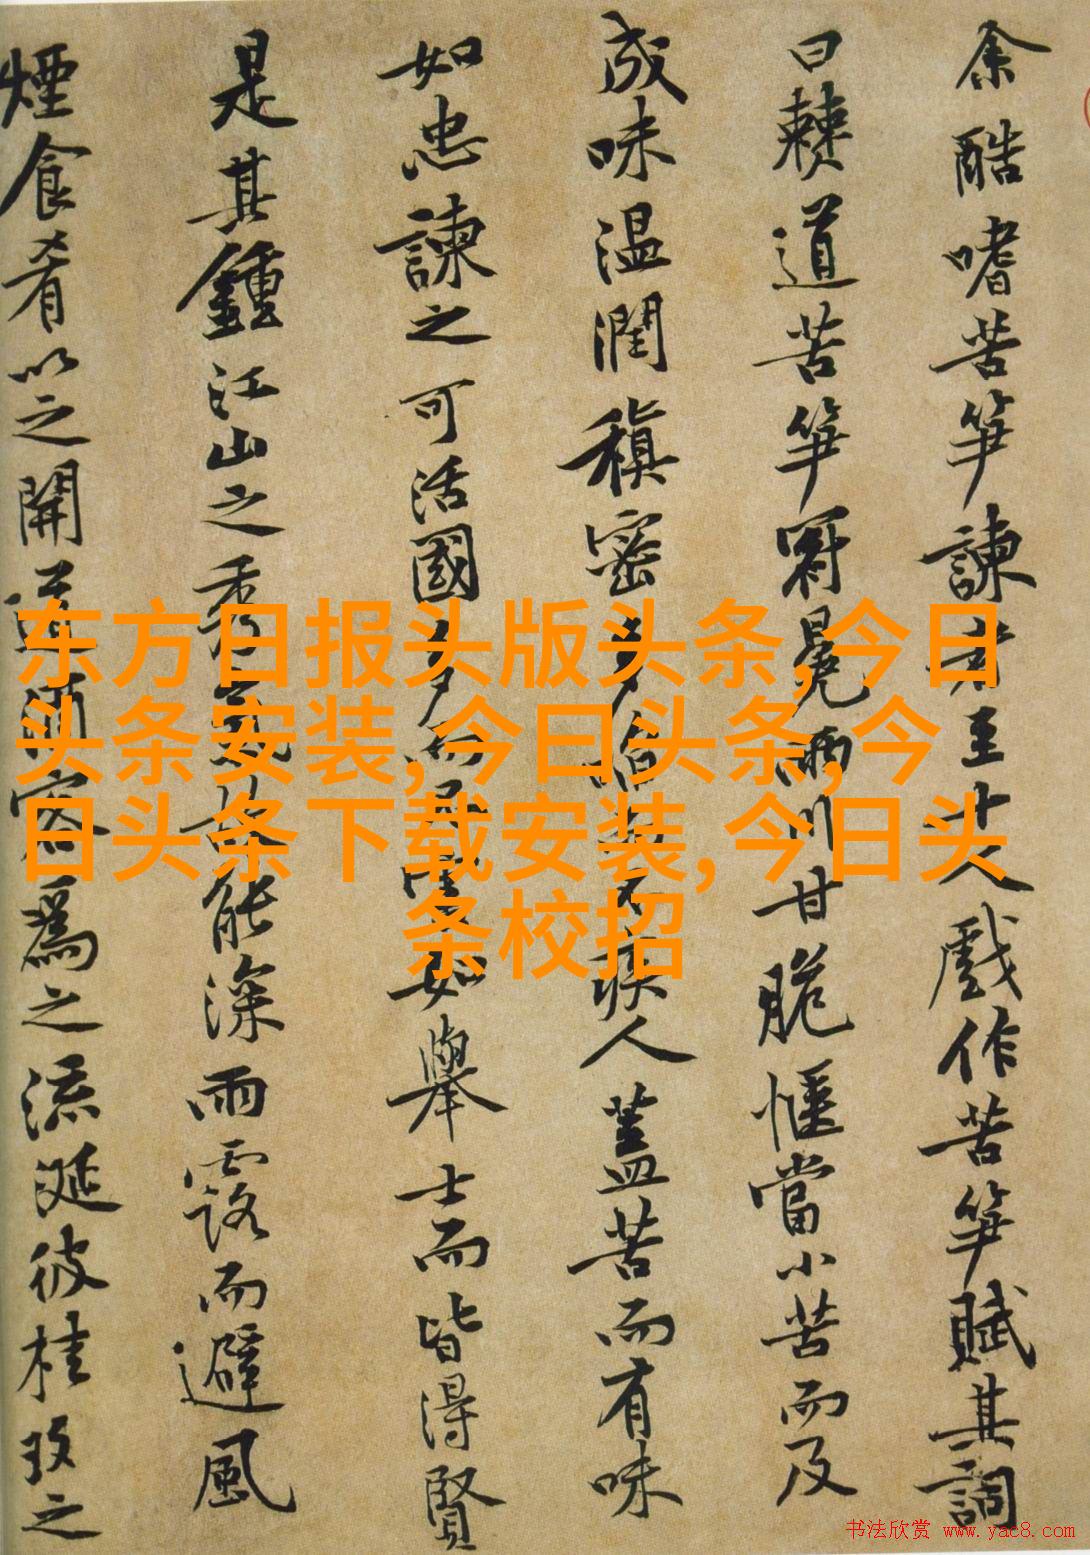 余酷嗜苦笋諫者至十人戲作苦笋賦其詞
曰僰道苦笋冠冕兩川甘脆愜當小苦而及
成味温潤稹密多啗而不疾人蓋苦而有味
如忠諫之可活國多而不害如舉士而皆得賢
是其鍾江山之秀氣故能深雨露而避風
煙食肴以之開道酒客爲之流涎彼桂玫之
东方日报头版头条,今日
头条安装,今日头条,今
日头条下载安装,今日头
条校招
书法欣赏 www.yac8.com